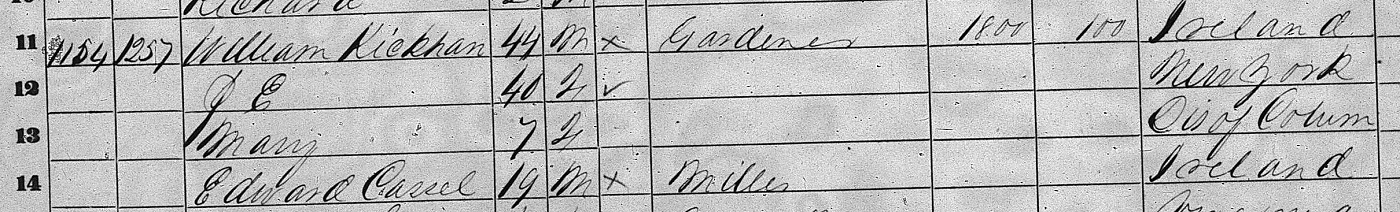 Richard
11 1154 1257 William Kickhan 44 M x Gardener 1800 100 Ireland
12 J E 40 F ✓ New York
13 Mary 7 F Dis of Colum
14 Edward Cassel 19 M x Miller Ireland